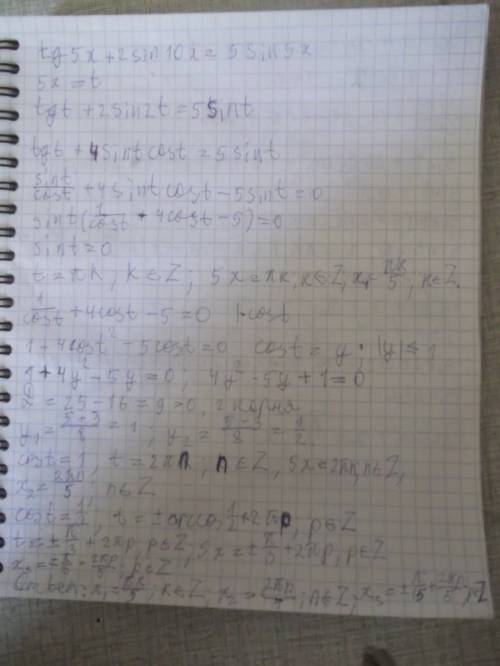 tg5x + 2sin10x = 5sin5x
5x = t
tgt + 2sin2t = 5sint
tgt + 4sintcost = 5sint
sint/cost + 4sintcost - 5sint = 0
sint(1/cost + 4cost - 5) = 0
sint = 0
t = πk, k ∈ Z; 5x = πk, k ∈ Z, x₁ = πk/5, k ∈ Z.
1/cost + 4cost - 5 = 0 |·cost
1 + 4cost² - 5cost = 0 cost = y; |y| ≤ 1
1 + 4y² - 5y = 0; 4y² - 5y + 1 = 0
D = 25 - 16 = 9 > 0, 2 корня
y₁ = (5+3)/8 = 1; y₂ = (5-3)/8 = 1/2
cost = 1, t = 2πn; n ∈ Z, 5x = 2πn, n ∈ Z,
x₂ = 2πn/5; n ∈ Z
cost = 1/2, t = ± arccos 1/2 + 2πp, p ∈ Z
t = ± π/3 + 2πp, p ∈ Z, 5x = ± π/3 + 2πp, p ∈ Z
x₃ = ± 2πp/5; p ∈ Z
Ответ: x₁ = πk/5, k ∈ Z, x₂ = 2πn/5; n ∈ Z; x₃ = ± π/5 + 2πp/5, p ∈ Z